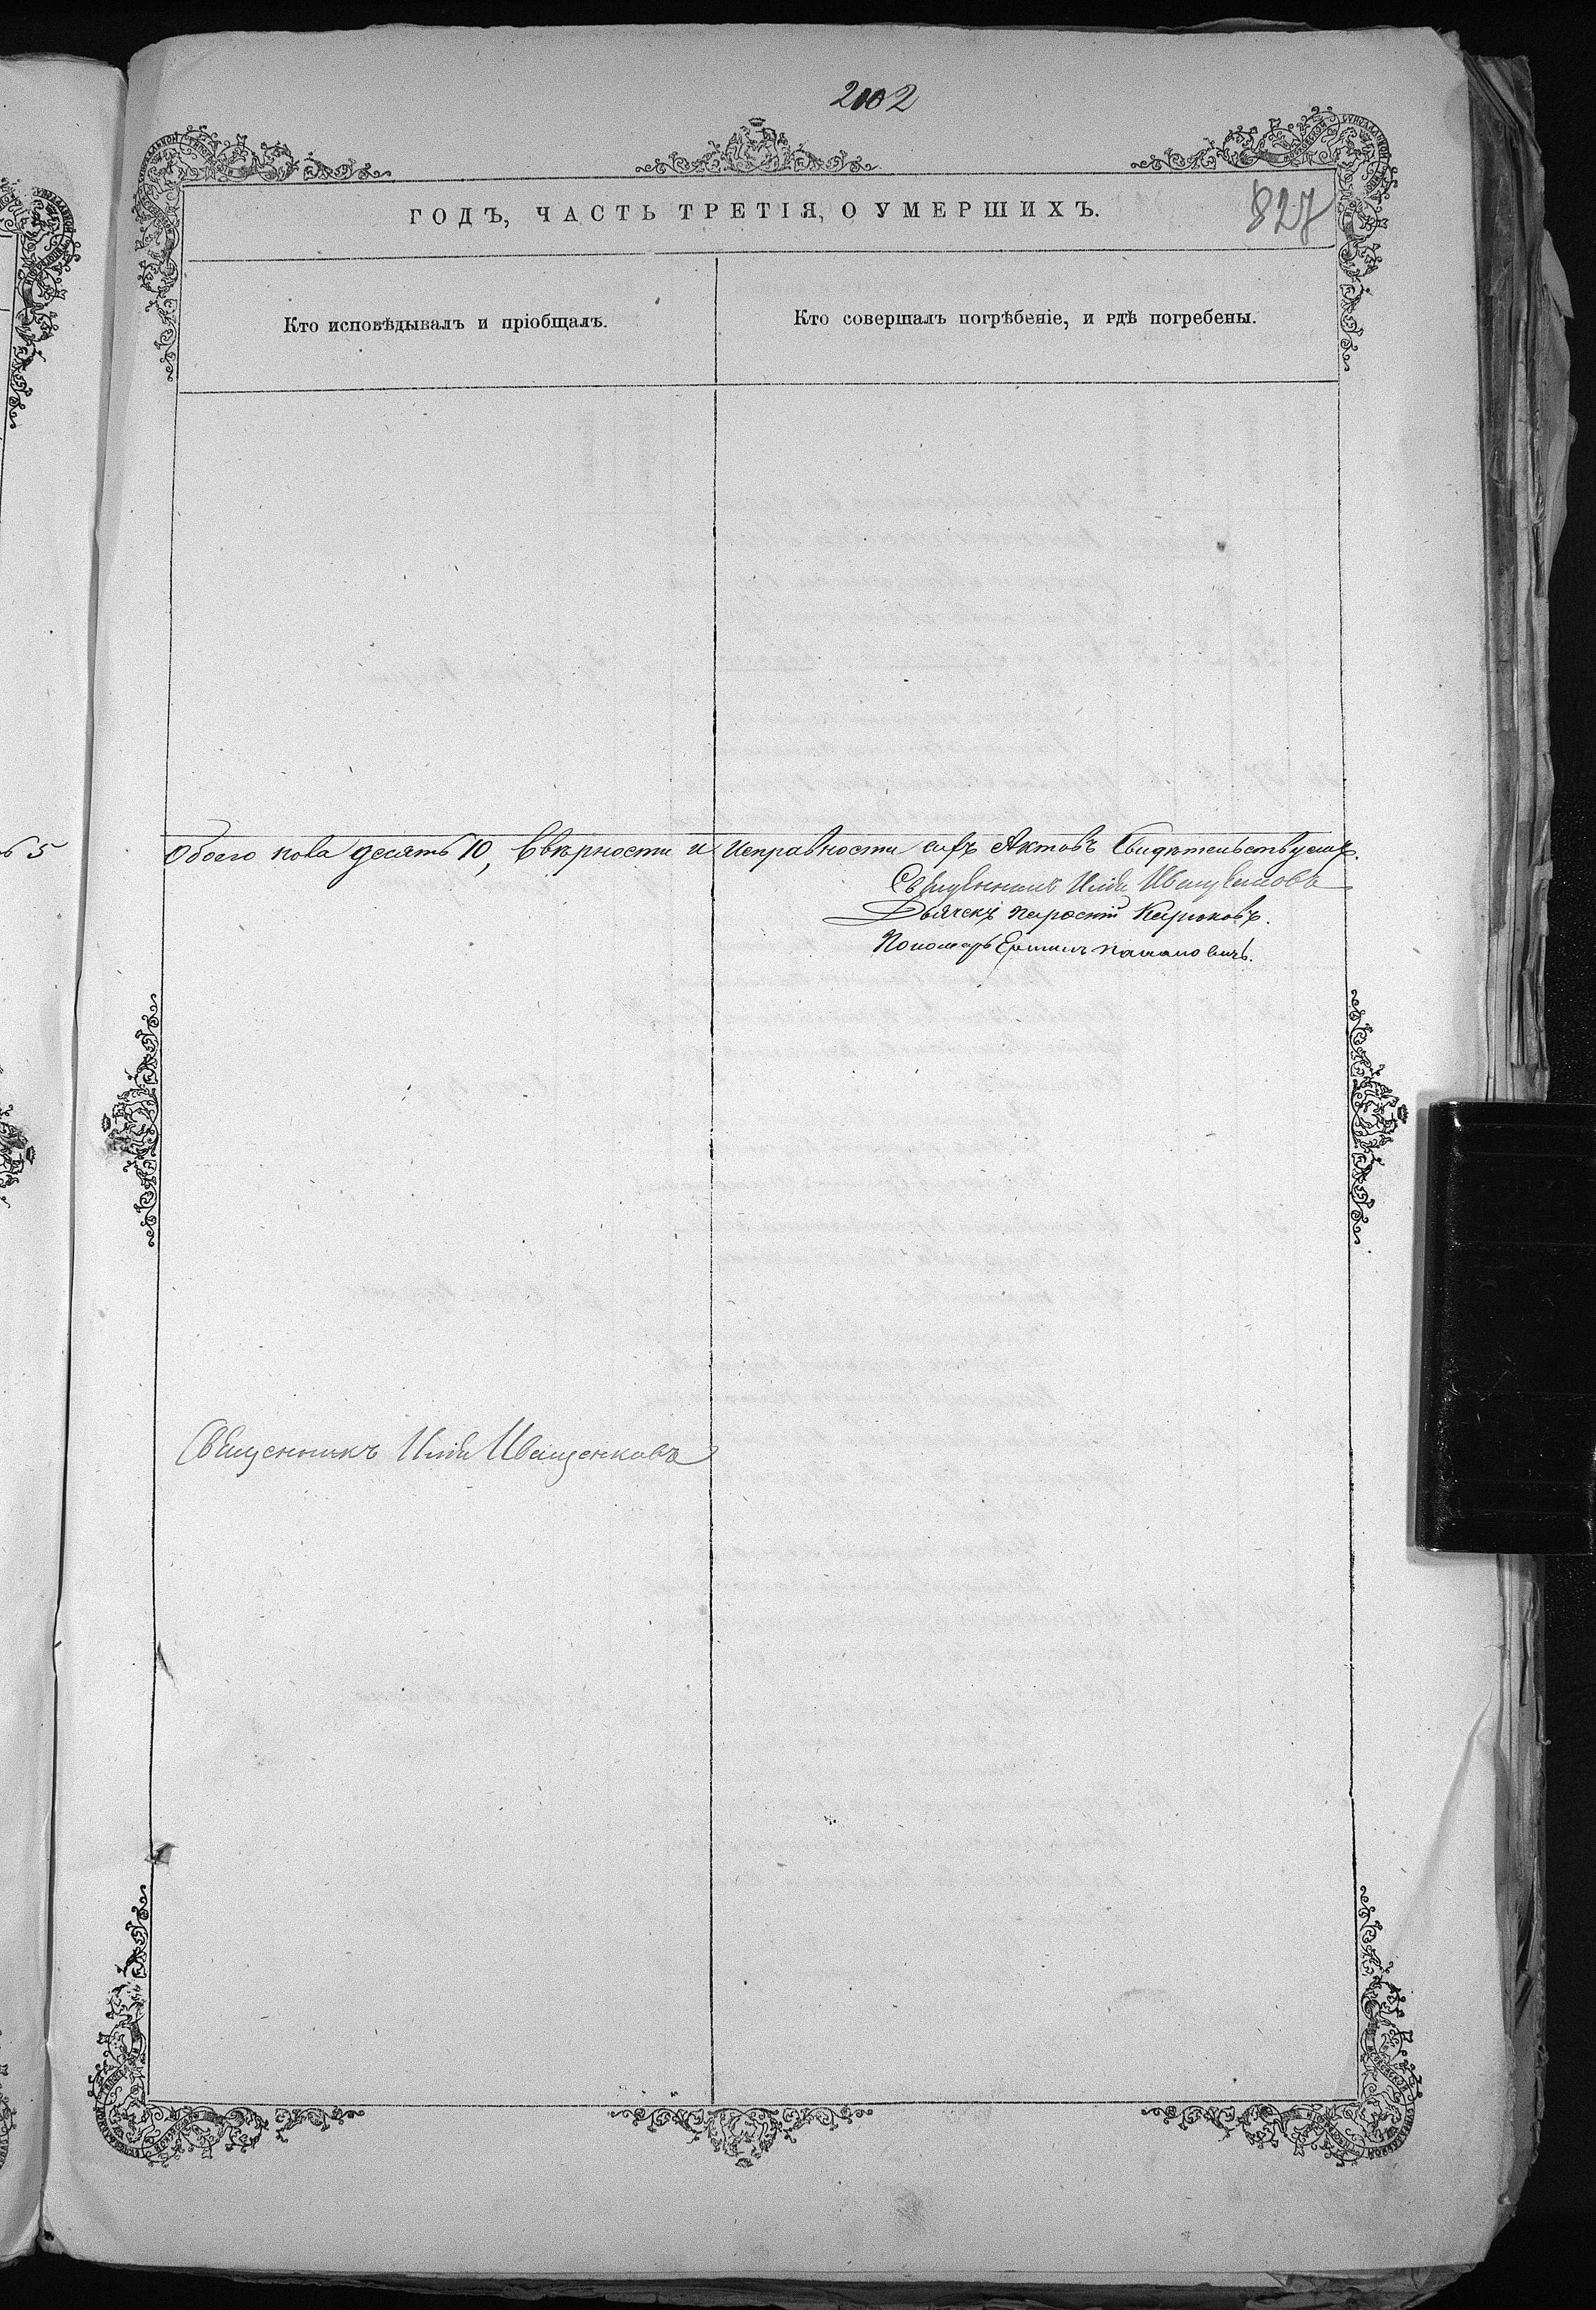 2102
827
ГОДЪ, ЧАСТЬ ТРЕТІЯ, О УМЕРШИХЪ.
Кто исповѣдывалъ и пріобщалъ.
Кто совершалъ погрѣбеніе, и гдѣ погребены.
5
Обоего пола десять 10, Ввѣрности и исправности сихъ Актовъ Свидѣтельствуемъ.
Священникъ Илія Иващенковъ
Дьячекъ Кирюковъ.
Пономарь
Священникъ Илія Иващенковъ